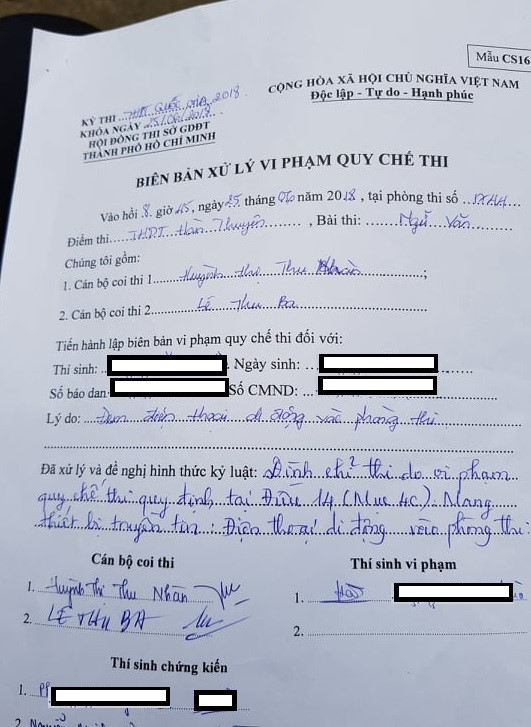 Mẫu CS16
CỘNG HÒA XÃ HỘI CHỦ NGHĨA VIỆT NAM
Độc lập - Tự do - Hạnh phúc
KỲ THI ...THPT QUỐC GIA 2018
KHÓA NGÀY 25/06/2018
HỘI ĐỒNG THI SỞ GDĐT
THÀNH PHỐ HỒ CHÍ MINH
BIÊN BẢN XỬ LÝ VI PHẠM QUY CHẾ THI
Vào hồi 8. giờ 45, ngày 25 tháng 06 năm 2018, tại phòng thi số
Điểm thi.....THPT Hàn Thuyên, Bài thi: Ngữ Văn
Chúng tôi gồm:
1. Cán bộ coi thi 1 Huỳnh Thị Thu Nhàn;
2. Cán bộ coi thi 2. Lê Thu Ba
Tiến hành lập biên bản vi phạm quy chế thi đối với:
Thí sinh: . Ngày sinh:
Số báo dan Số CMND:
Lý do: Đem điện thoại di động vào phòng thi
Đã xử lý và đề nghị hình thức kỷ luật: Đình chỉ thi do vi phạm
quy chế thi quy định tại Điều 14 (Mục 4c). Mang
thiết bị truyền tin: Điện thoại di động vào phòng thi.
Cán bộ coi thi Thí sinh vi phạm
1. Huỳnh Thị Thu Nhàn 1.
2. LÊ THU BA 2.
Thí sinh chứng kiến
1.
2.